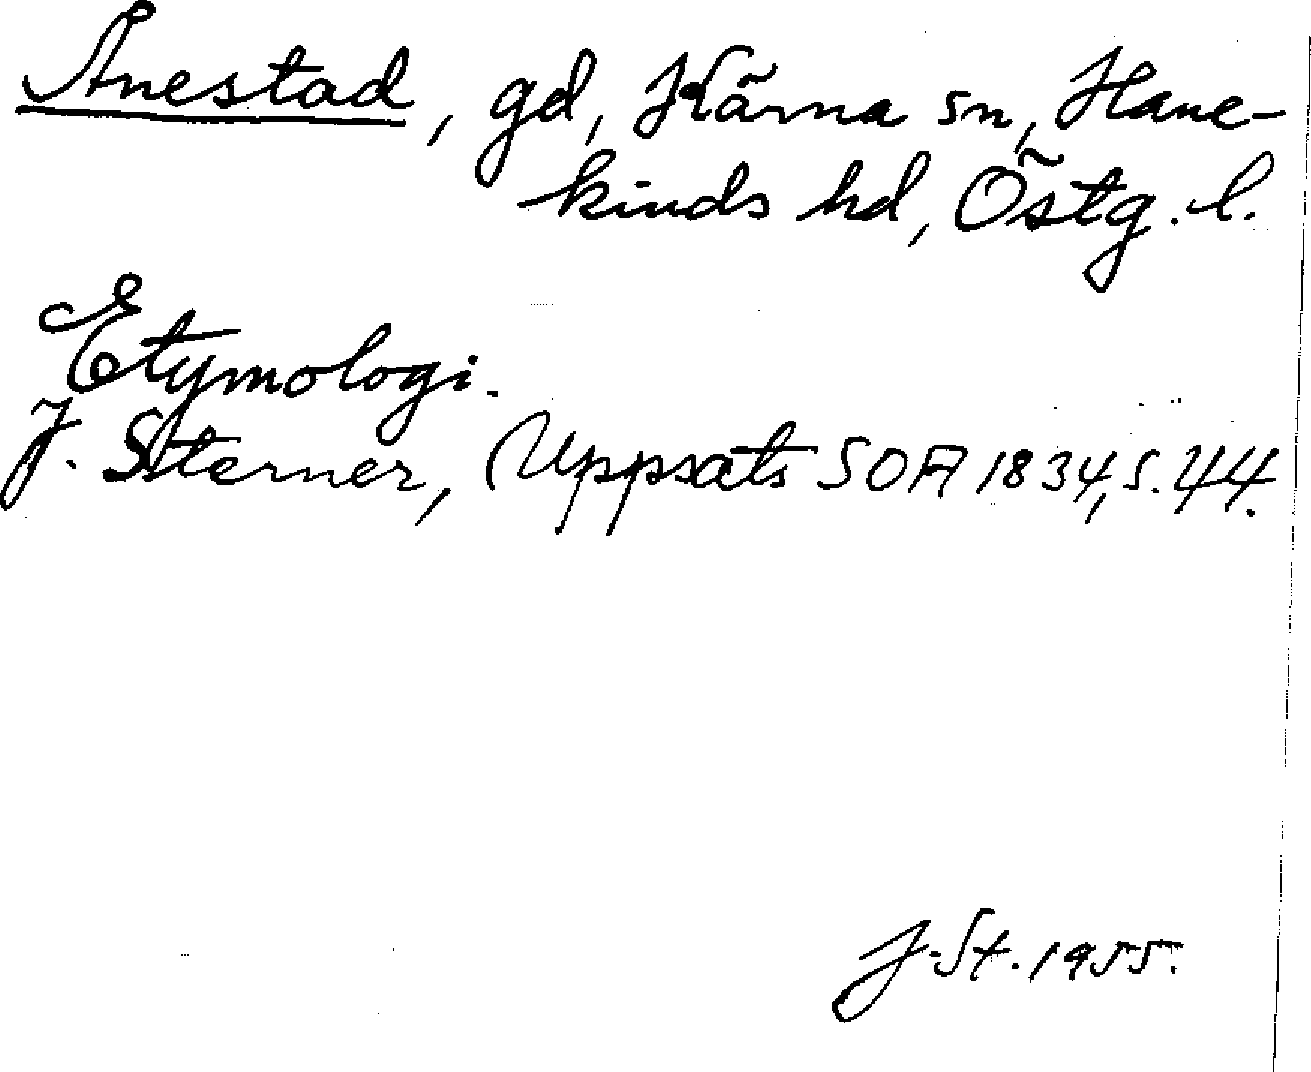 Ånestad, gd, Kärna sn, Hane-
kinds hd, Östg. l.
Etymologi.
J. Sterner, Uppsats SOA 1834, s. 44.
J. St. 1955.